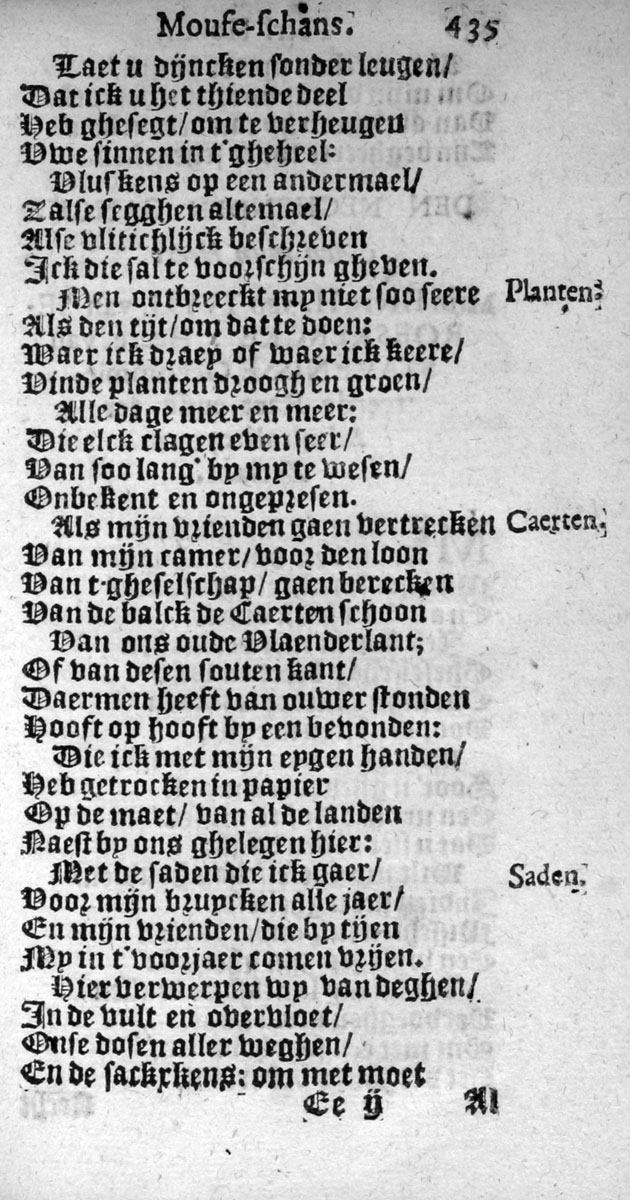 Mouſe-ſchans. 435
Laet u dijncken ſonder leugen/
Dat ick u het thiende deel
Heb gheſegt/om te verheugen
Uwe ſinnen in t'gheheel:
Vluſkens op een andermael/
Talſe ſegghen altemael/
Alſe vlitichlijck beſchreven
Ick die ſal te voorſchijn gheven.
Men ontbreeckt my niet ſoo ſeere Planten:
Als den tijt/om dat te doen:
Waer ick draey of waer ick keere/
Vinde planten droogh en groen/
Alle dage meer en meer:
Die elck clagen even ſeer/
Van ſoo lang' by my te weſen/
Onbekent en ongepreſen.
Als mijn vrienden gaen vertrecken Caerten.
Van mijn camer/voor den loon
Van t'gheſelſchap/gaen berecken
Van de balck de Caerten ſchoon
Van ons oude Vlaenderlant;
Of van deſen ſouten kant/
Daermen heeft van ouwer ſtonden
Hooft op hooft by een bevonden:
Die ick met mijn eygen handen/
Heb getrocken in papier
Op de maet/ van al de landen
Naeſt by ons ghelegen hier:
Met de ſaden die ick gaer/ Saden.
Voor mijn bruycken alle jaer/
En mijn vrienden/die by tijen
My in t'voorjaer comen vrijen.
Hier verwerpen wy van deghen/
In de vult en overvloet/
Onſe doſen aller weghen/
En de ſackxkens: om met moet
Ee ij Al